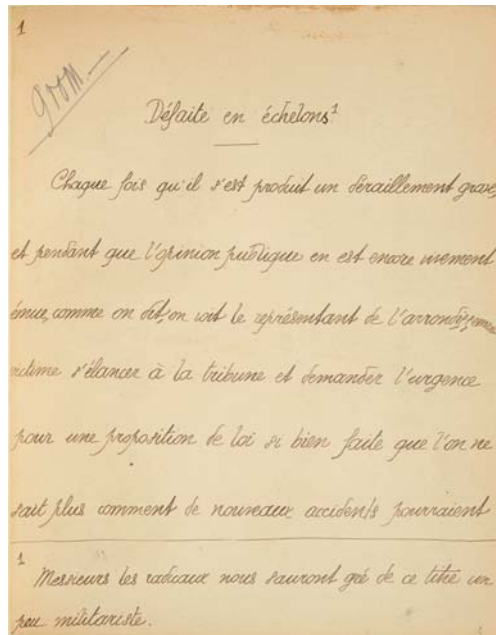 1
Défaite en échelons¹
Chaque fois qu'il s'est produit un déraillement grave,
et pendant que l'opinion publique en est encore vivement
émue, comme on dit, on voit le représentant de l'arrondissement
victime s'élancer à la tribune et demander l'urgence
pour une proposition de loi si bien faite que l'on ne
sait plus comment de nouveaux accidents pourraient
¹ Messieurs les radicaux nous sauront gré de ce titre un
peu militariste.